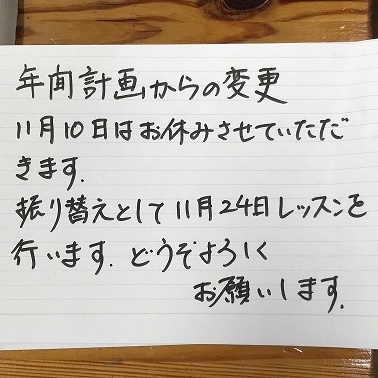 年間計画からの変更
11月10日はお休みさせていただ
きます.
振り替えとして11月24日レッスンを
行います.どうぞよろしく
お願いします.